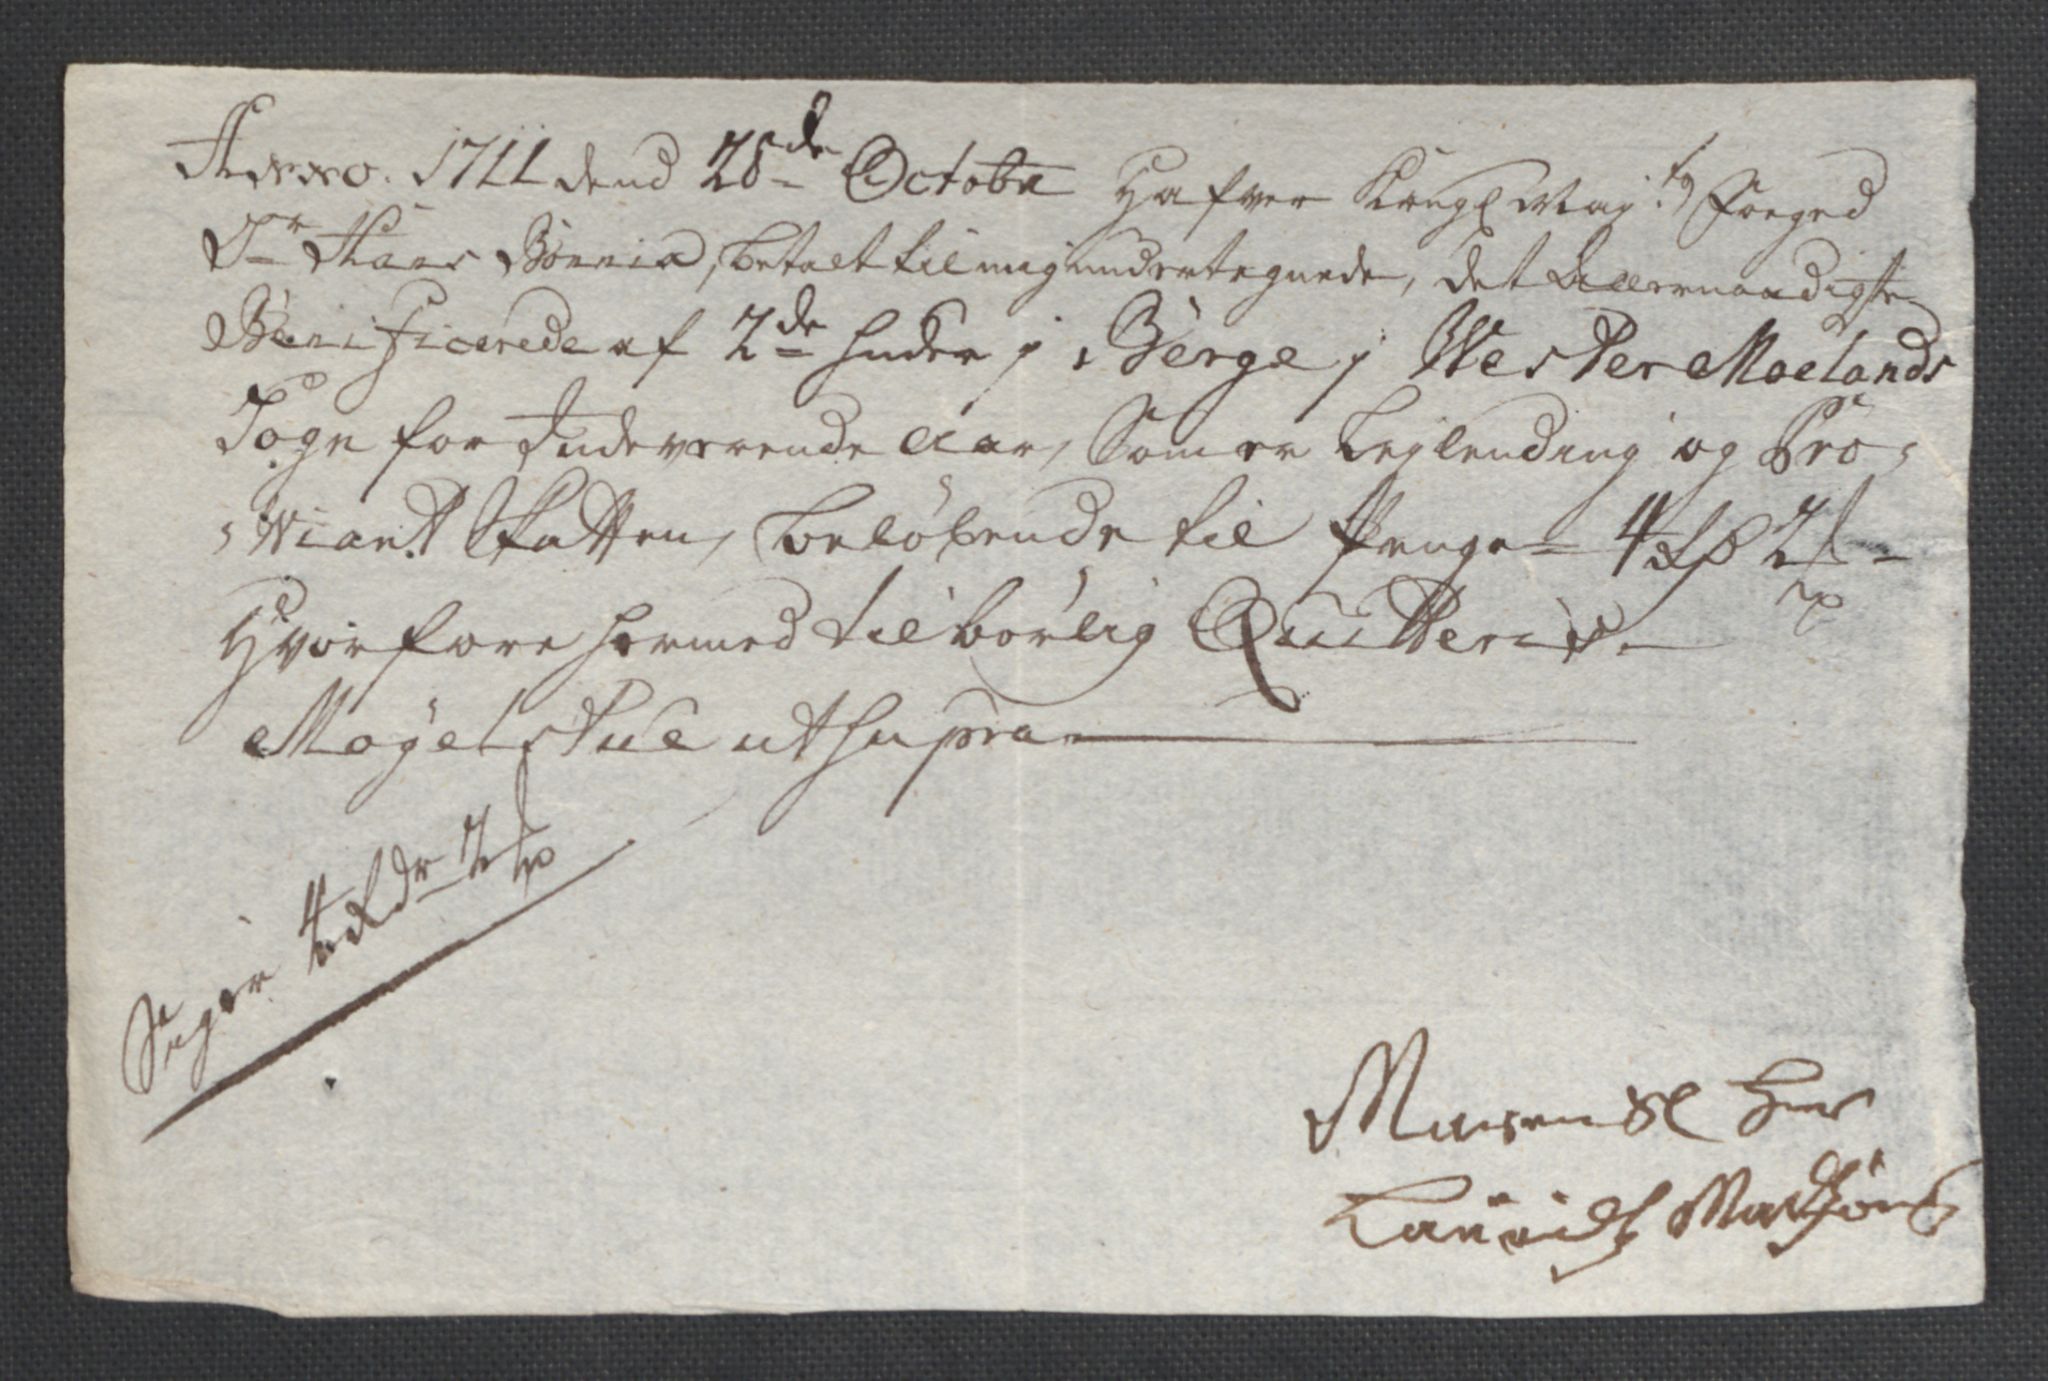 Anno. 1711 dend 28de Octobr Hafver Kongl Maj:ts Foeged
Sr Hans Bönnich, betalt til mig undertegnede, det allernaadigste
Benificerede af 2de huder j Berge j Wester Moelands
Sogn for Indeverende Aar, Som er Leylending og Pro,
,Viant Skatten, belöbende til Penge = 4 Rd 2 ß
Hvorfore hermed tilbörlig Quitteris.
Möyelstue ut supra
Siger 4 Rdr 2 ß
Maren Sl Her
Laurids Mathsöns